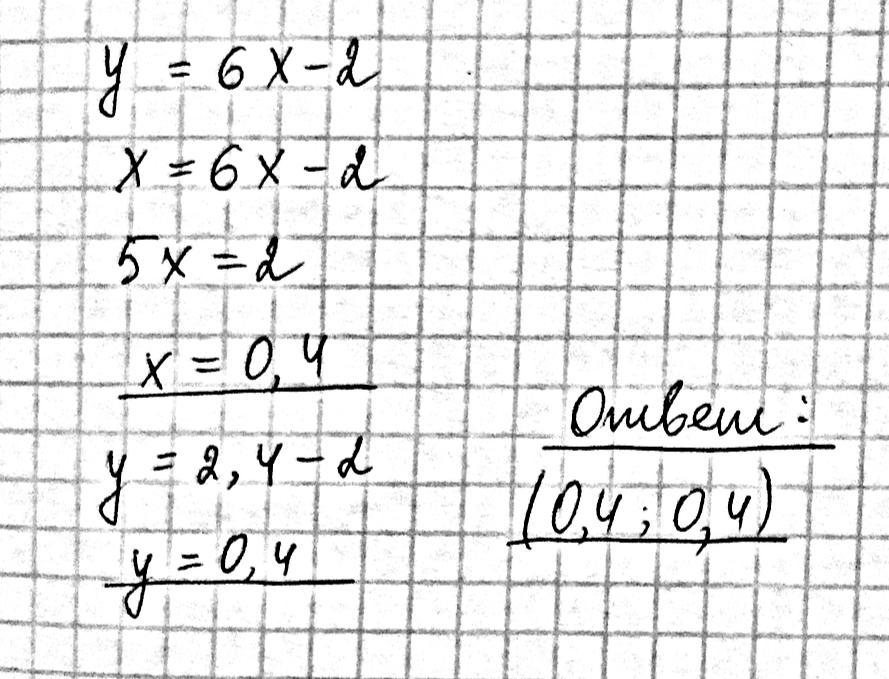 y = 6x-2
x = 6x-2
5x = 2
x = 0,4
y = 2,4-2
y = 0,4
Ответ:
(0,4; 0,4)